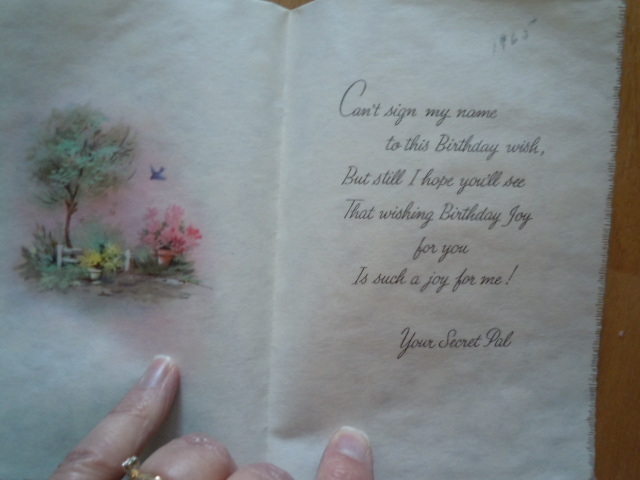 1965
Can't sign my name
to this Birthday wish,
But still I hope you'll see
That wishing Birthday Joy
for you
Is such a joy for me!
Your Secret Pal